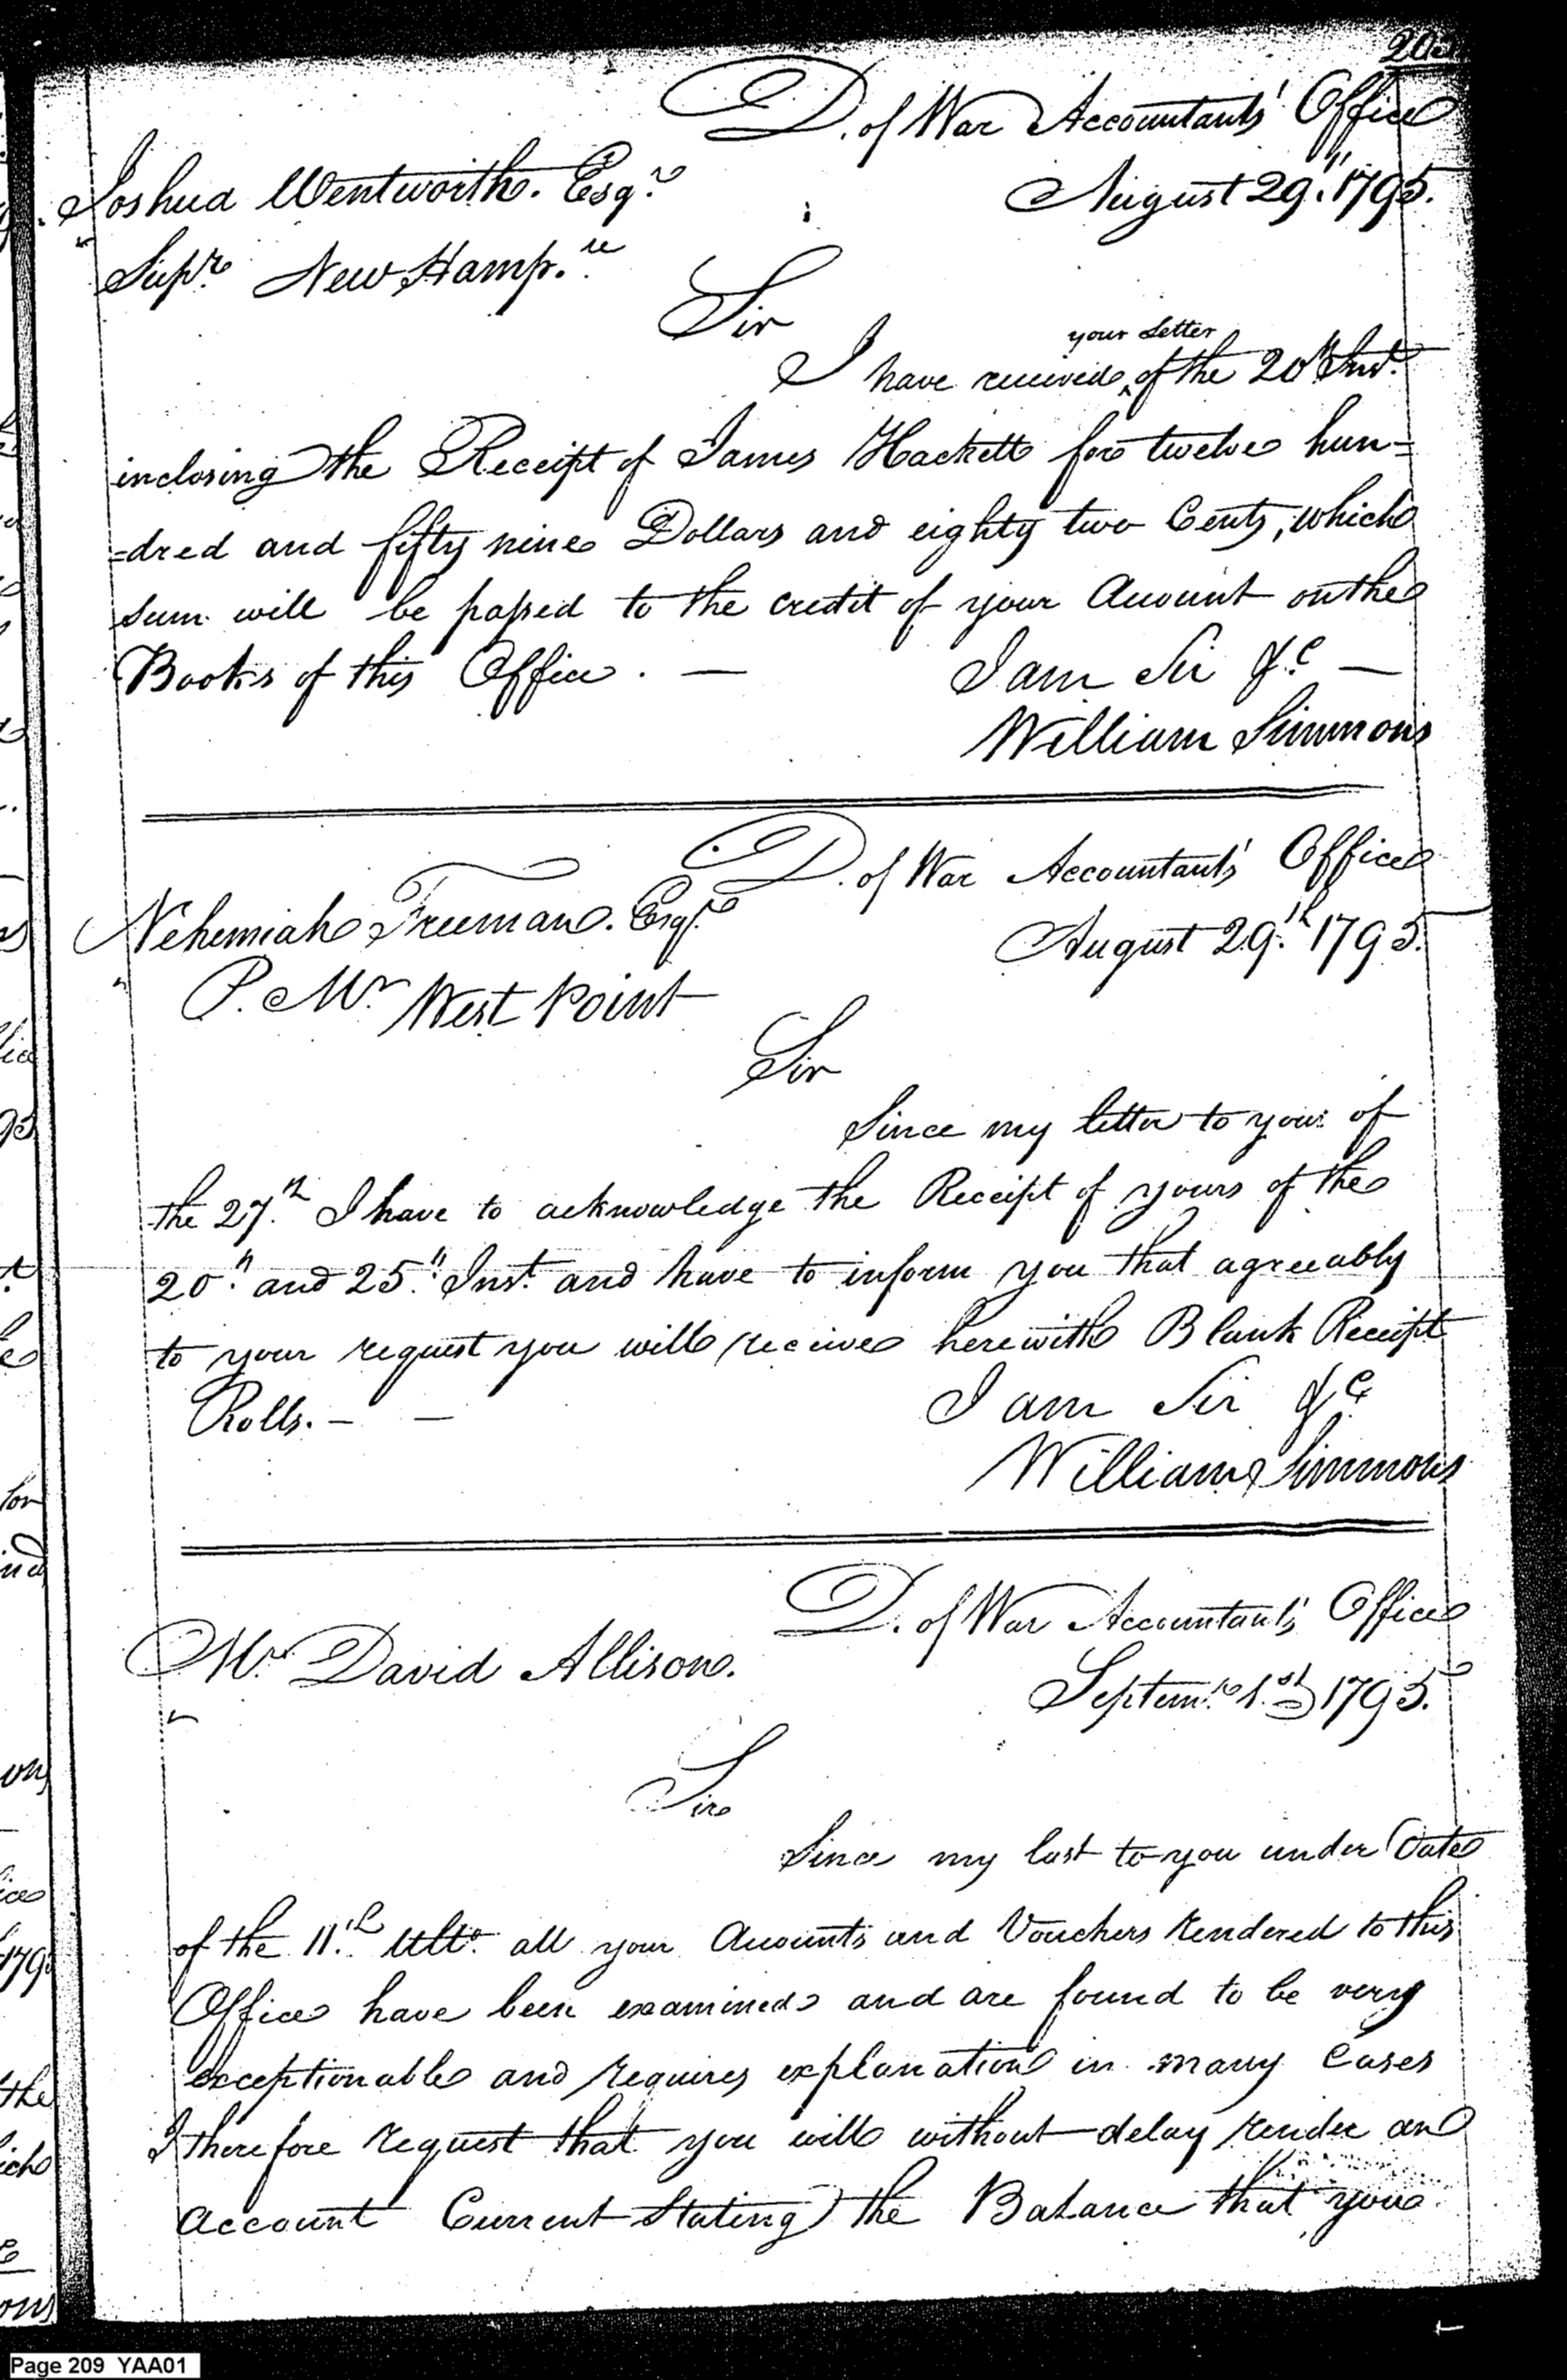 D. of War Accountants' Office
August 29th 1795.
Joshua Wentworth. Esqr.
Supr. New Hamp.re
Sir
your Letter
I have received ‸ of the 20th Inst.
inclosing the Receipt of James Hackett for twelve hun=
=dred and fifty nine Dollars and eighty two Cents, which
sum will be passed to the credit of your Account on the
Books of this Office. —
I am Sir &c —
William Simmons
D. of War Accountants' Office
August 29.th 1795.
Nehemiah Freeman. Esqr.
P. Mr West Point
Sir
Since my letter to you of
the 27.th I have to acknowledge the Receipt of yours of the
20.th and 25.th Inst. and have to inform you that agreeably
to your request you will receive herewith Blank Receipt
Rolls. — —
I am Sir &c
William Simmons
D. of War Accountants' Office
Septemr. 1.st 1795.
Mr. David Allison.
Sir
Since my last to you under Date
of the 11.th Ulto. all your Accounts and Vouchers rendered to this
Office have been examined and are found to be very
exceptionable and requires explanation in many Cases
I therefore request that you will without delay render an
Account Current Stating the Balance that you
Page 209 YAA01